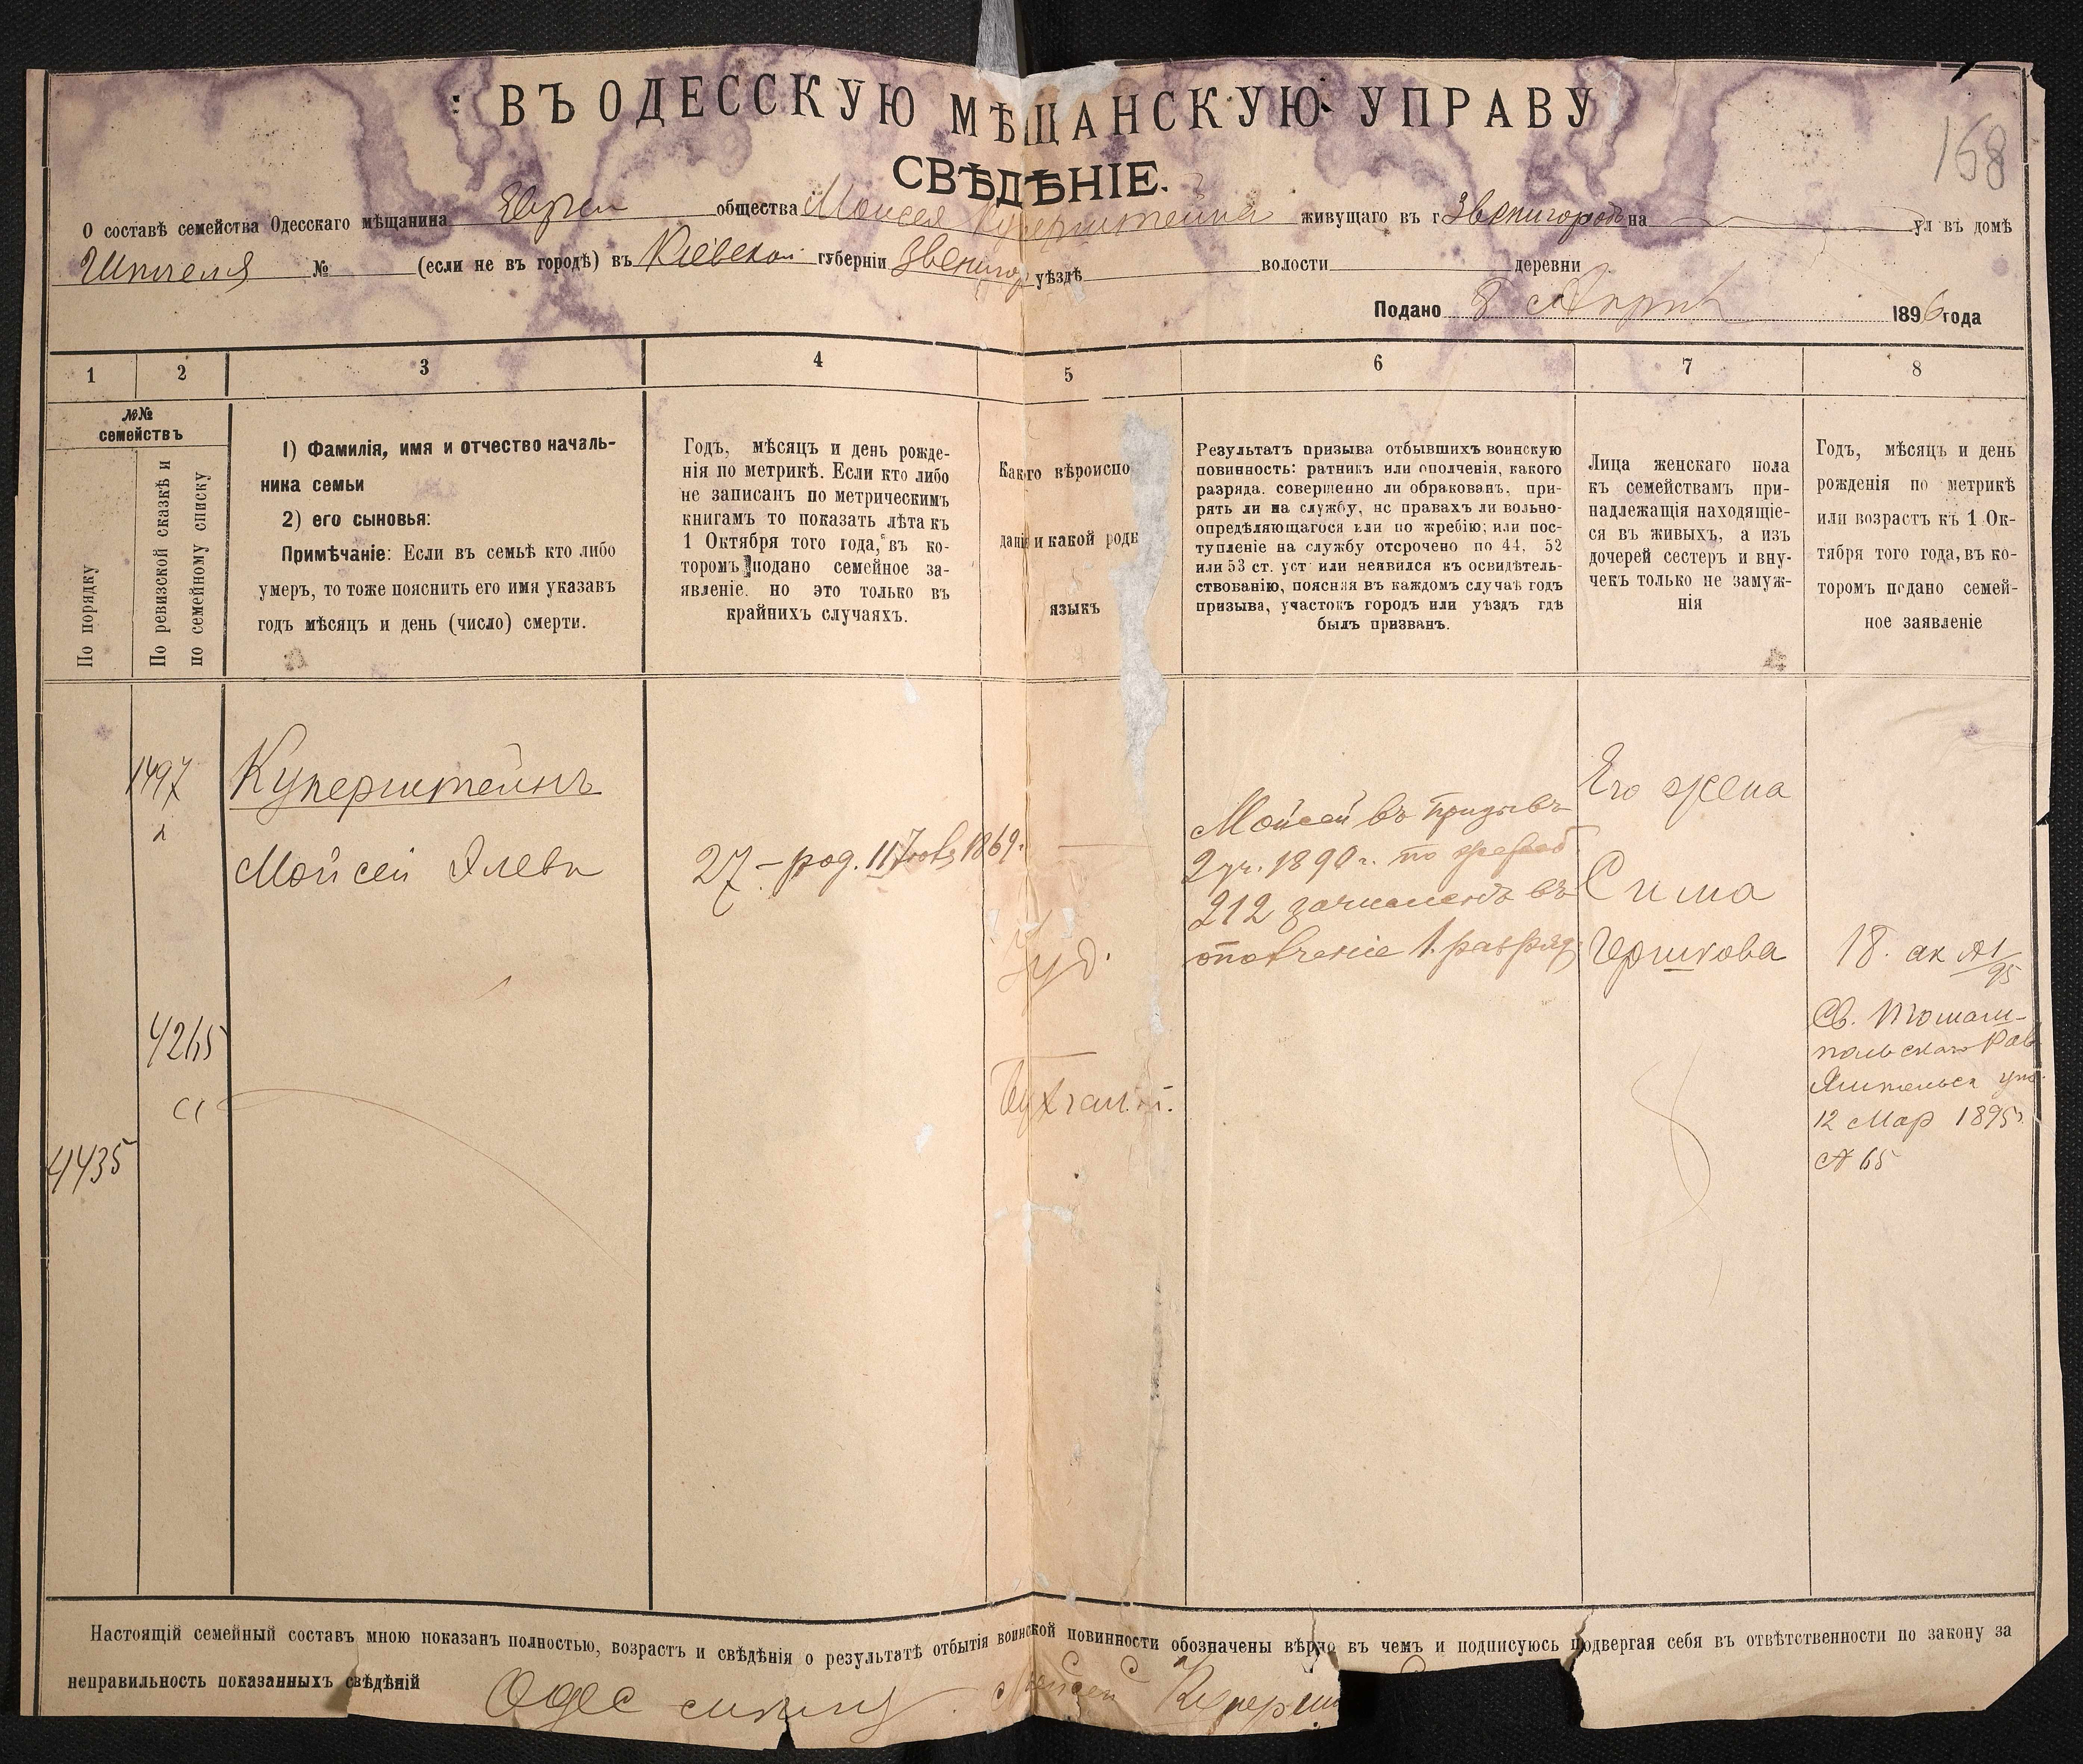 ВЪ ОДЕССКУЮ МѢЩАНСКУЮ УПРАВУ
168
СВѢДѢНІЕ.
О составѣ семейства Одесскаго мѣщанина общества Моисея Куперштейна живущаго въ г Звенигородкѣ на ул въ домѣ
Шпигеля № (если не въ городѣ) въ Кіевской губерніи Звенигор уѣздѣ волости деревни
Подано 8 Апрѣ 1896 года
1 2 3 4 5 6 7 8
№№
семействъ
По порядку
По ревизской сказкѣ и
по семейному списку
1) Фамилія, имя и отчество началь-
ника семьи
2) его сыновья:
Примѣчаніе: Если въ семьѣ кто либо
умеръ, то тоже пояснить его имя указавъ
годъ мѣсяцъ и день (число) смерти.
Годъ, мѣсяцъ и день рожде-
нія по метрикѣ. Если кто либо
не записанъ по метрическимъ
книгамъ то показать лѣта къ
1 Октября того года, въ ко-
торомъ подано семейное за-
явленіе. но это только въ
крайнихъ случаяхъ.
Какого вѣроиспо
данія и какой родн
языкъ
Результатъ призыва отбывшихъ воинскую
повинность: ратникъ или ополченія, какого
разряда. совершенно ли обракованъ. при-
рять ли на службу, нс правахъ ли вольно-
опредѣляющагося или по жребію; или пос-
тупленіе на службу отсрочено по 44, 52
или 53 ст. уст или неявился къ освидѣтель-
ствованію, поясняя въ каждомъ случаѣ годъ
призыва, участокъ городъ или уѣздъ гдѣ
былъ призванъ.
Лица женскаго пола
къ семействамъ при-
надлежащія находящіе-
ся въ живыхъ, а изъ
дочерей сестеръ и вну-
чекъ только не замуж-
нія
Годъ, мѣсяцъ и день
рожденія по метрикѣ
или возрастъ къ 1 Ок-
тября того года, въ ко-
торомъ подано семей-
ное заявленіе
1497
Куперштейнъ
Мойсей
27 – род. 11 1869г.
Іуд.
Мойсей въ призывъ
2 уч. 1890 г. по жреб.
212 зачисленъ въ
ополченіе 1 разряд
Его жена
Сима
Гершкова
18. ак №1/95
Св. Томаш-
польскаго Рав
Ямпольск у
12 Мар 1895г.
№ 65
4265
4435
Настоящій семейный составъ мною показанъ полностью, возрастъ и свѣдѣнія о результатѣ отбытія воинской повинности обозначены вѣрно въ чемъ и подписуюсь подвергая себя въ отвѣтственности по закону за
неправильность показанныхъ свѣдѣній
Одес Мойсей Куперш